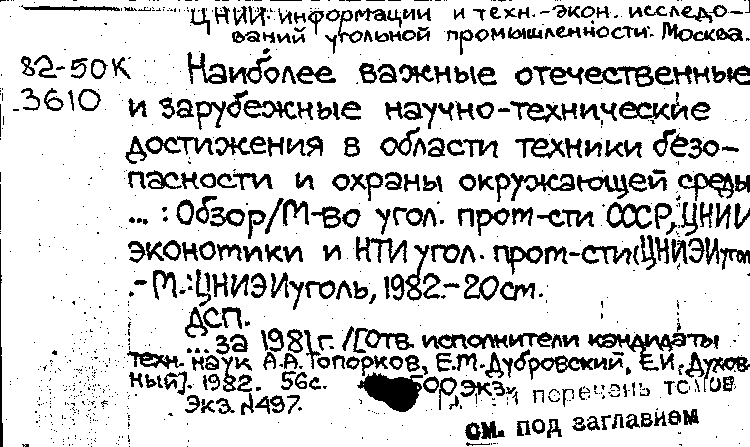 ЦНИИ информации и техн.-экон. исследо-
ваний угольной промышленности. Москва.
82-50К Наиболее важные отечественные
3610 и зарубежные научно-технические
достижения в области техники безо-
пасности и охраны окружающей среды
... : Обзор/М-во угол. пром-сти СССР, ЦНИИ
экономики и НТИ угол. пром-сти(ЦНИЭИугол
.- М.: ЦНИЭИуголь, 1982.- 20 см.
ДСП.
... за 1981 г. /[Отв. исполнители кандидаты
техн. наук А.А. Топорков, Е.М. Дубровский, Е.И. Духов
ный]. 1982. 56 с. 500 экз.
перечень томов
Экз. №497.
см. под заглавием